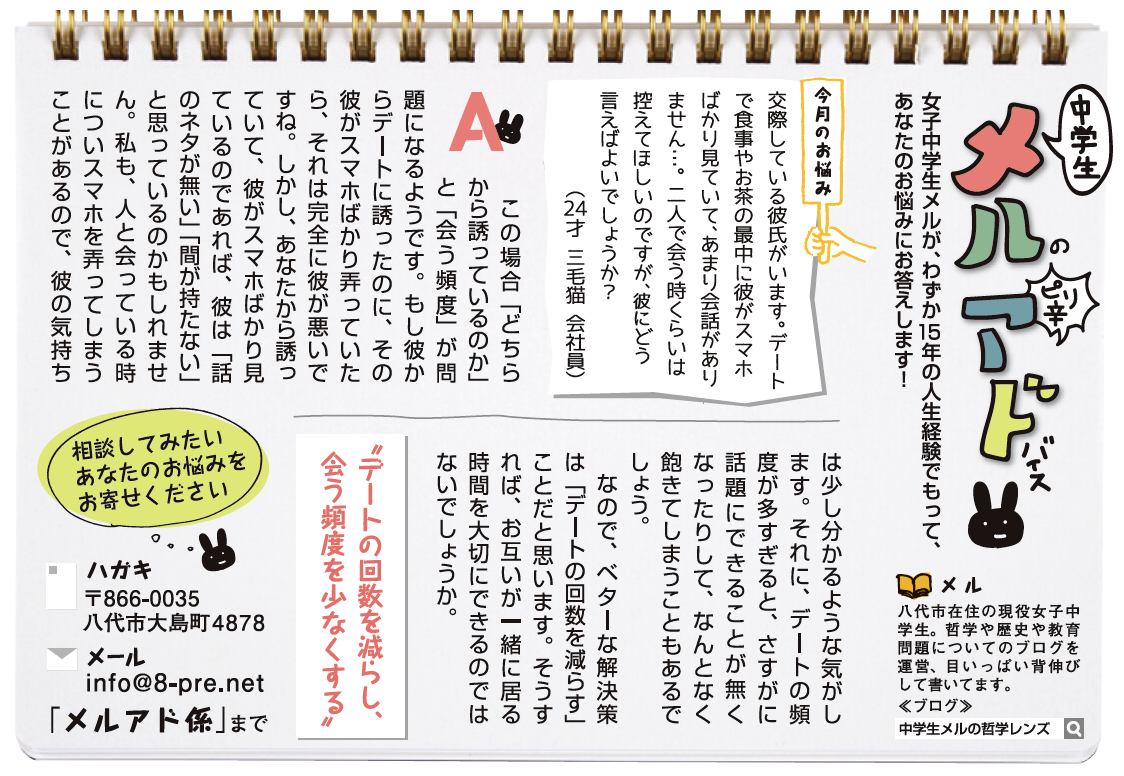 中学生
メルの
ピリ辛
アドバイス
女子中学生メルが、わずか15年の人生経験でもって、
あなたのお悩みにお答えします!
メル
八代市在住の現役女子中
学生。哲学や歴史や教育
問題についてのブログを
運営、目いっぱい背伸び
して書いてます。
≪ブログ≫
中学生メルの哲学レンズ
今月のお悩み
交際している彼氏がいます。デート
で食事やお茶の最中に彼がスマホ
ばかり見ていて、あまり会話があり
ません…。二人で会う時くらいは
控えてほしいのですが、彼にどう
言えばよいでしょうか?
(24才 三毛猫 会社員)
A
この場合「どちら
から誘っているのか」
と「会う頻度」が問
題になるようです。もし彼か
らデートに誘ったのに、その
彼がスマホばかり弄っていた
ら、それは完全に彼が悪いで
すね。しかし、あなたから誘っ
ていて、彼がスマホばかり見
ているのであれば、彼は「話
のネタが無い」「間が持たない」
と思っているのかもしれませ
ん。私も、人と会っている時
についスマホを弄ってしまう
ことがあるので、彼の気持ち
は少し分かるような気がし
ます。それに、デートの頻
度が多すぎると、さすがに
話題にできることが無く
なったりして、なんとなく
飽きてしまうこともあるで
しょう。
なので、ベターな解決策
は「デートの回数を減らす」
ことだと思います。そうす
れば、お互いが一緒に居る
時間を大切にできるのでは
ないでしょうか。
〝デートの回数を減らし、
会う頻度を少なくする〟
相談してみたい
あなたのお悩みを
お寄せください
ハガキ
〒866-0035
八代市大島町4878
メール
info@8-pre.net
「メルアド係」まで